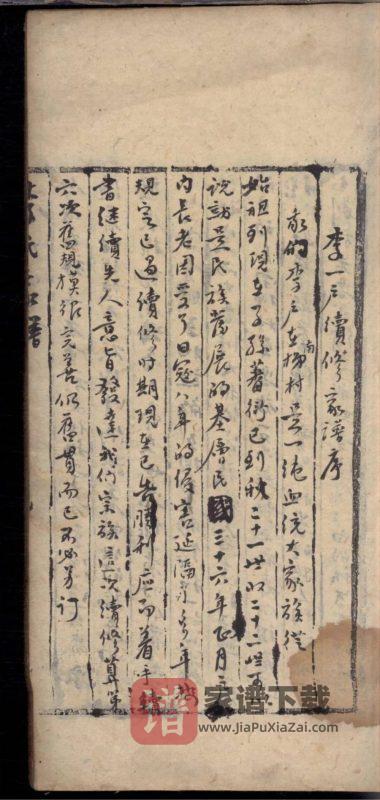 李一戶續修家譜序
我們李户在南楊村是一純血統大家族從
始祖到現在子孫蕃衍已到秋二十一世収二十二世
說動是民族發展的基層民國三十六年正月
内長老因受了日寇八年的侵害延滔了多年
規定已過續修时期現在已告勝利應而着手
書继續先人意旨發達我们宗族這次續修算第
六次舊規模很完善仍舊貫而已不必另訂
氏
譜
谱
家谱下载
www.JiaPuXiaZai.com